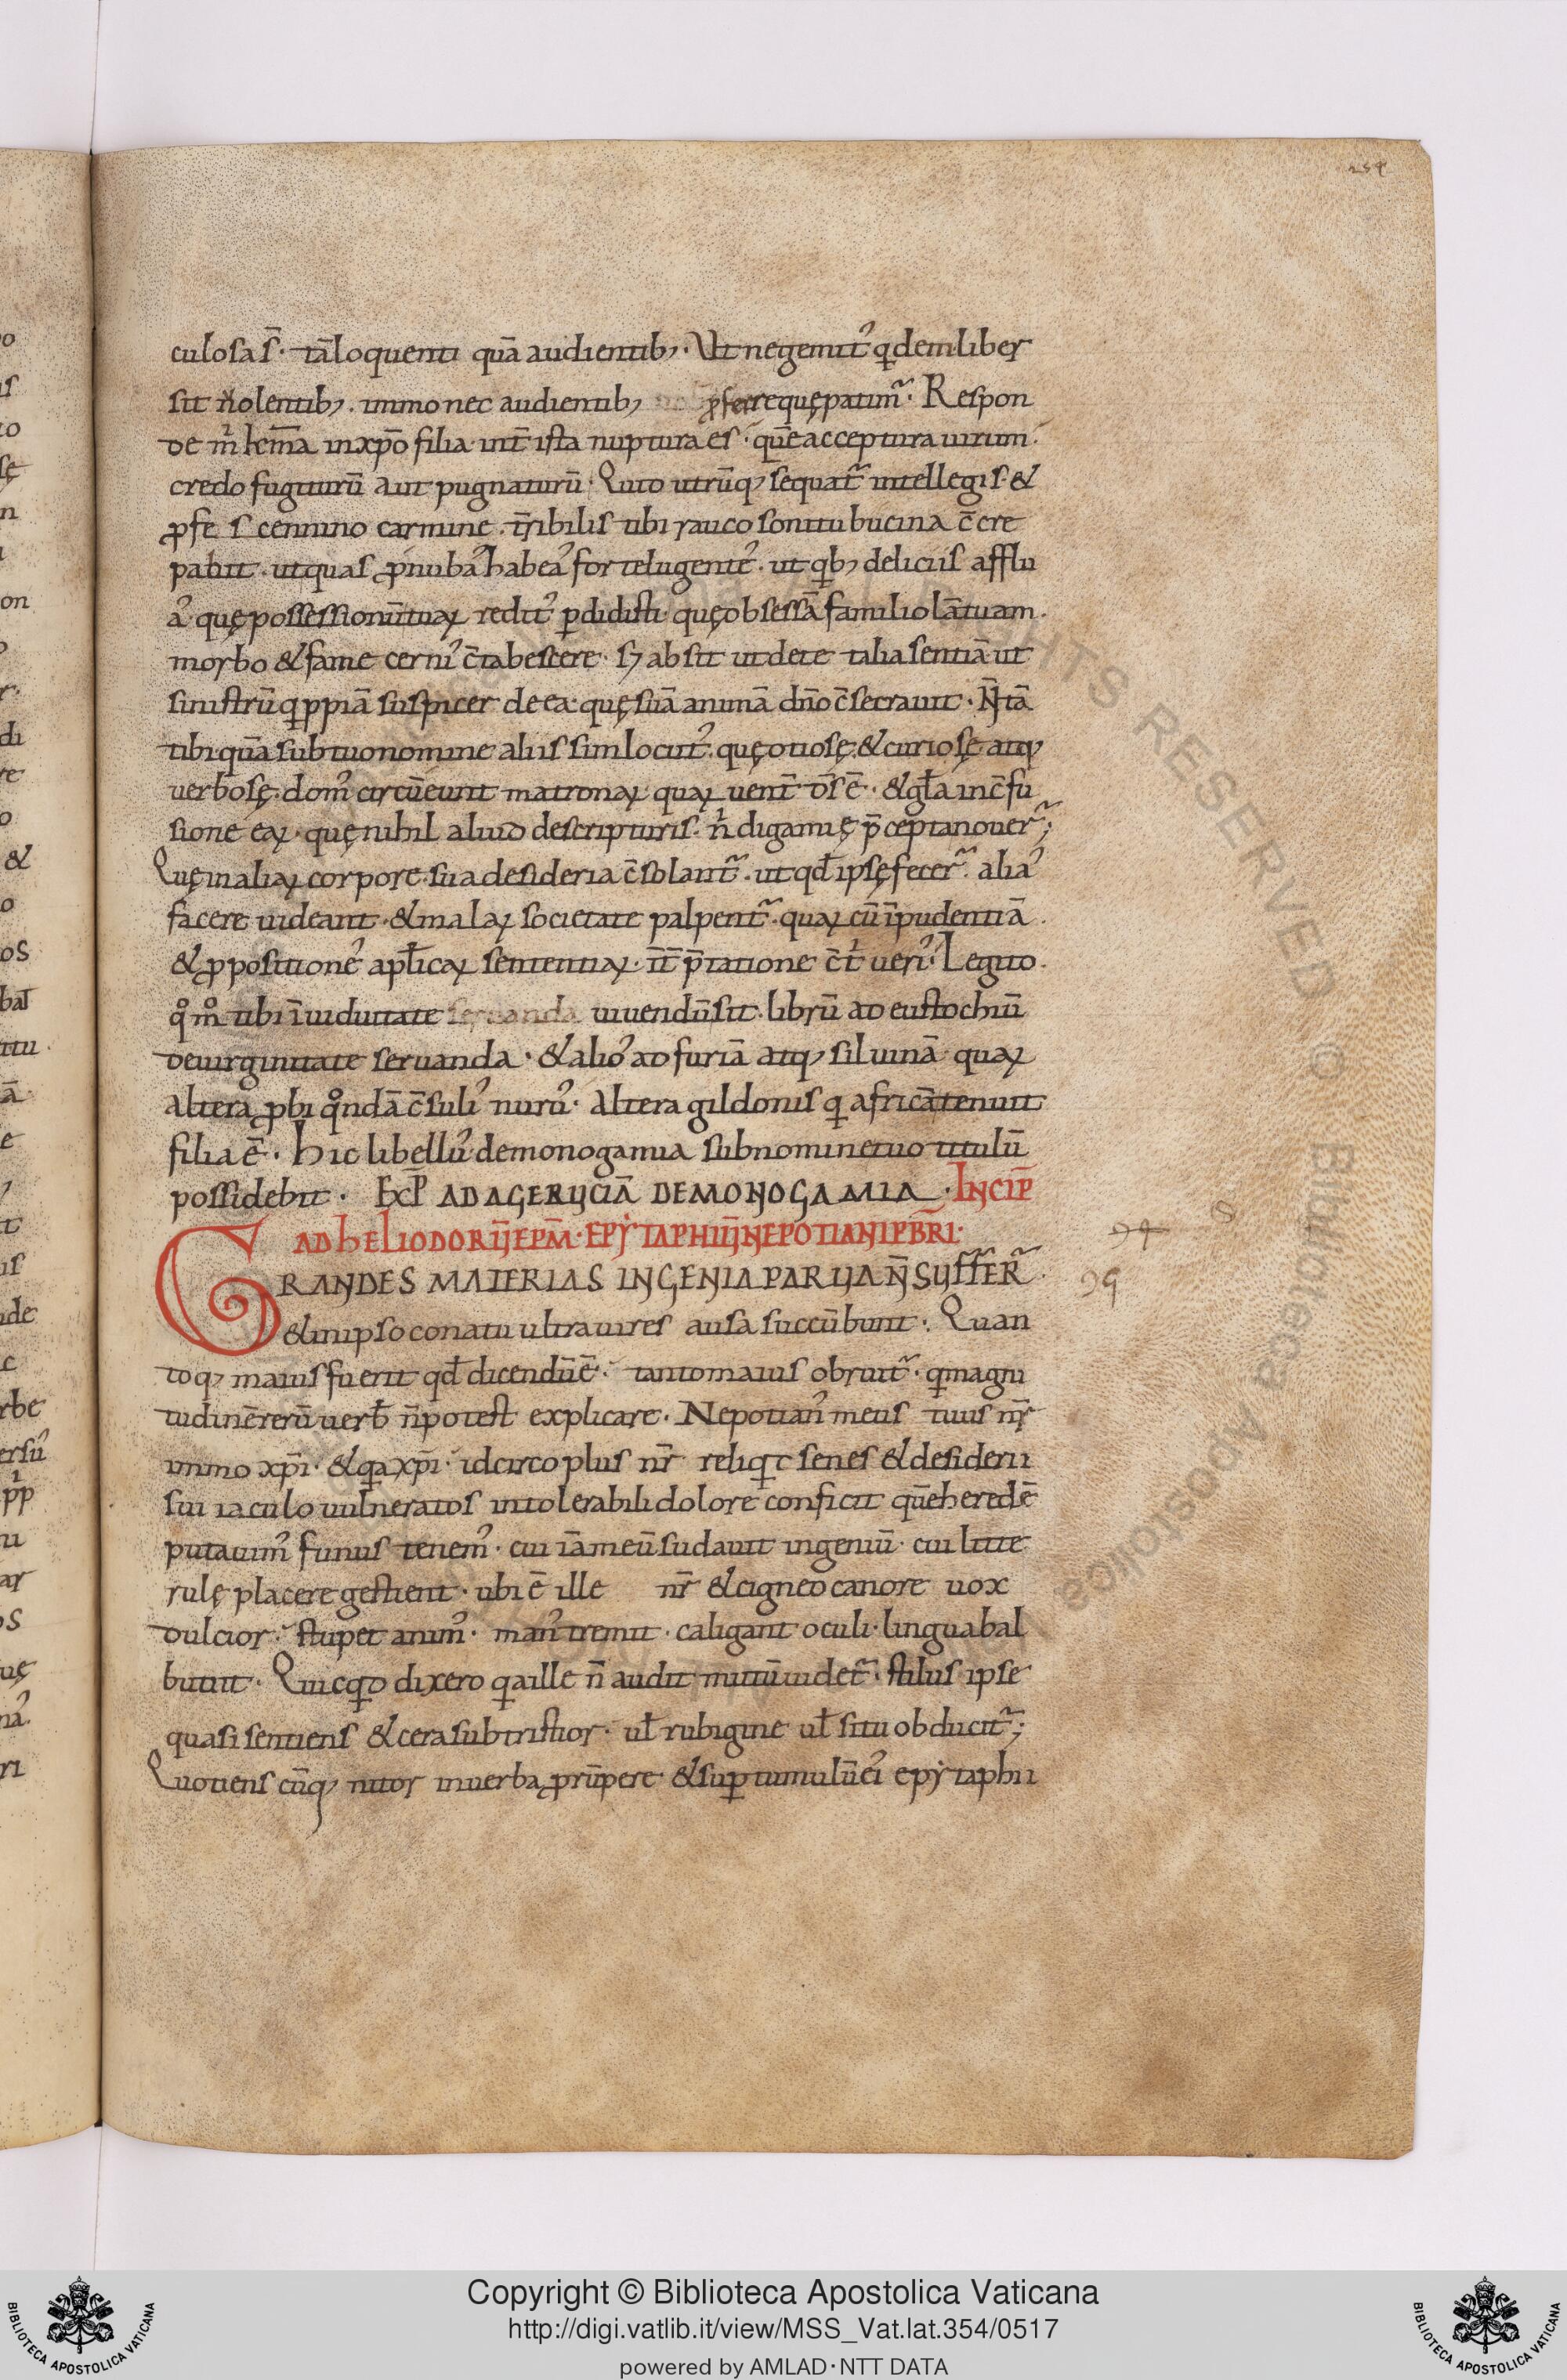 254
culosa s̄ · tā loquenti quā audientib; · Ut negemit᾽ q dem liber
sit ñ olentib; . immo nec audientib; ꝓferre quę patim᾽ · Respon
de m̊ kc̄ma in xp̄o filia · int̄ ista nuptura es · quē acceptura uirum ·
credo fugiturū aut pugnaturū · Quto utrūq; sequat᾽ intellegis · &
ꝓfe s cennino carmine · tr̄ibilis tibi rauco sonitu bucina c̄cre
pabit · ut quas ꝓnubā habea᾽ forte lugente᾽ · ut qb; deliciis afflu
a᾽ · quę possessionū tuaꝝ redit᾽ ꝑdidisti · quę obsessā familiolā tuam ·
morbo & fame cerni᾽ c̄tabescere · sꝫ absit ut de te talia sentiā ut
sinistrū qppiā suspicer de ea · quę suā animā dn̄o c̄secrauit · N̄ tā
tibi quā sub tuo nomine aliis sim locut᾽ · quę otiosę & curiosę atq;
uerbosę · dom᾽ circūeunt matronaꝝ · quaꝝ uent̄ d̄s ē · & gl̄a in c̄fu
sione eaꝝ · quę nihil aliud de scripturis · n̊ digamię p̄cepta nouer᾽;
Quę in aliaꝝ corpore · sua desideria c̄solant᾽ · ut qd̄ ipsę fecer᾽ · alia᾽
facere uideant · & malaꝝ societate palpent᾽ · quaꝝ cū īpudentiā ·
& ꝓpositione᾽ apl̄icaꝝ sententiaꝝ · īt̄p̄tatione c̄t̊ ueri᾽ · Legito ·
q̊m̊ tibi ī uiduitate seruanda uiuendū sit · librū ad eustochiū
de uirginitate seruanda · & alio᾽ ad furiā atq; siluinā · quaꝝ
altera ꝓbi q̊ndā c̄suli᾽ nuru᾽ · altera gildonis q africā tenuit
filia ē · Hic libellu᾽ de monogamia sub nomine tuo titulū
possidebit · EXP̄ AD AGERUCIĀ DE MONOGAMIA · INCIP̄
AD HELIODORŪ EPM̄ · EPYTAPHIŪ NEPOTIANI PBR̄I ·
GRANDES MATERIAS INGENIA PARUA N̄ SUFFER᾽ ·
& in ipso conatu ultra uires ausa succūbunt · Quan
toq; maius fuerit qd̄ dicendū ē · tanto maius obruit᾽ · q magni
tudinē rerū uerb̄ n̄ potest explicare · Nepotian᾽ meus tuus nr̄
immo xp̄i · & qa xp̄i · idcirco plus nr̄ reliqt senes & desiderii
sui iaculo uulneratos intolerabili dolore conficit quē heredē
putauim᾽ funus tenem᾽ · cui iā meū sudauit ingeniū · cui litte
rulę placere gestient · ubi ē ille nr̄ & cigneo canore uox
dulcior · stupet anim᾽ · man᾽ tremit · caligant oculi · lingua bal
butit · Quicqd dixero qa ille n̄ audit mutū uidet᾽ · stilus ipse
quasi sentiens & cera subtristior · ul̄ rubigine ul̄ situ obducit᾽;
Quotiens cūq; nitor in uerba ꝓrūpere & suꝑ tumulū ei᾽ epytaphii
Copyright © Biblioteca Apostolica Vaticana
http://digi.vatlib.it/view/MSS_Vat.lat.354/0517
powered by AMLAD·NTT DATA